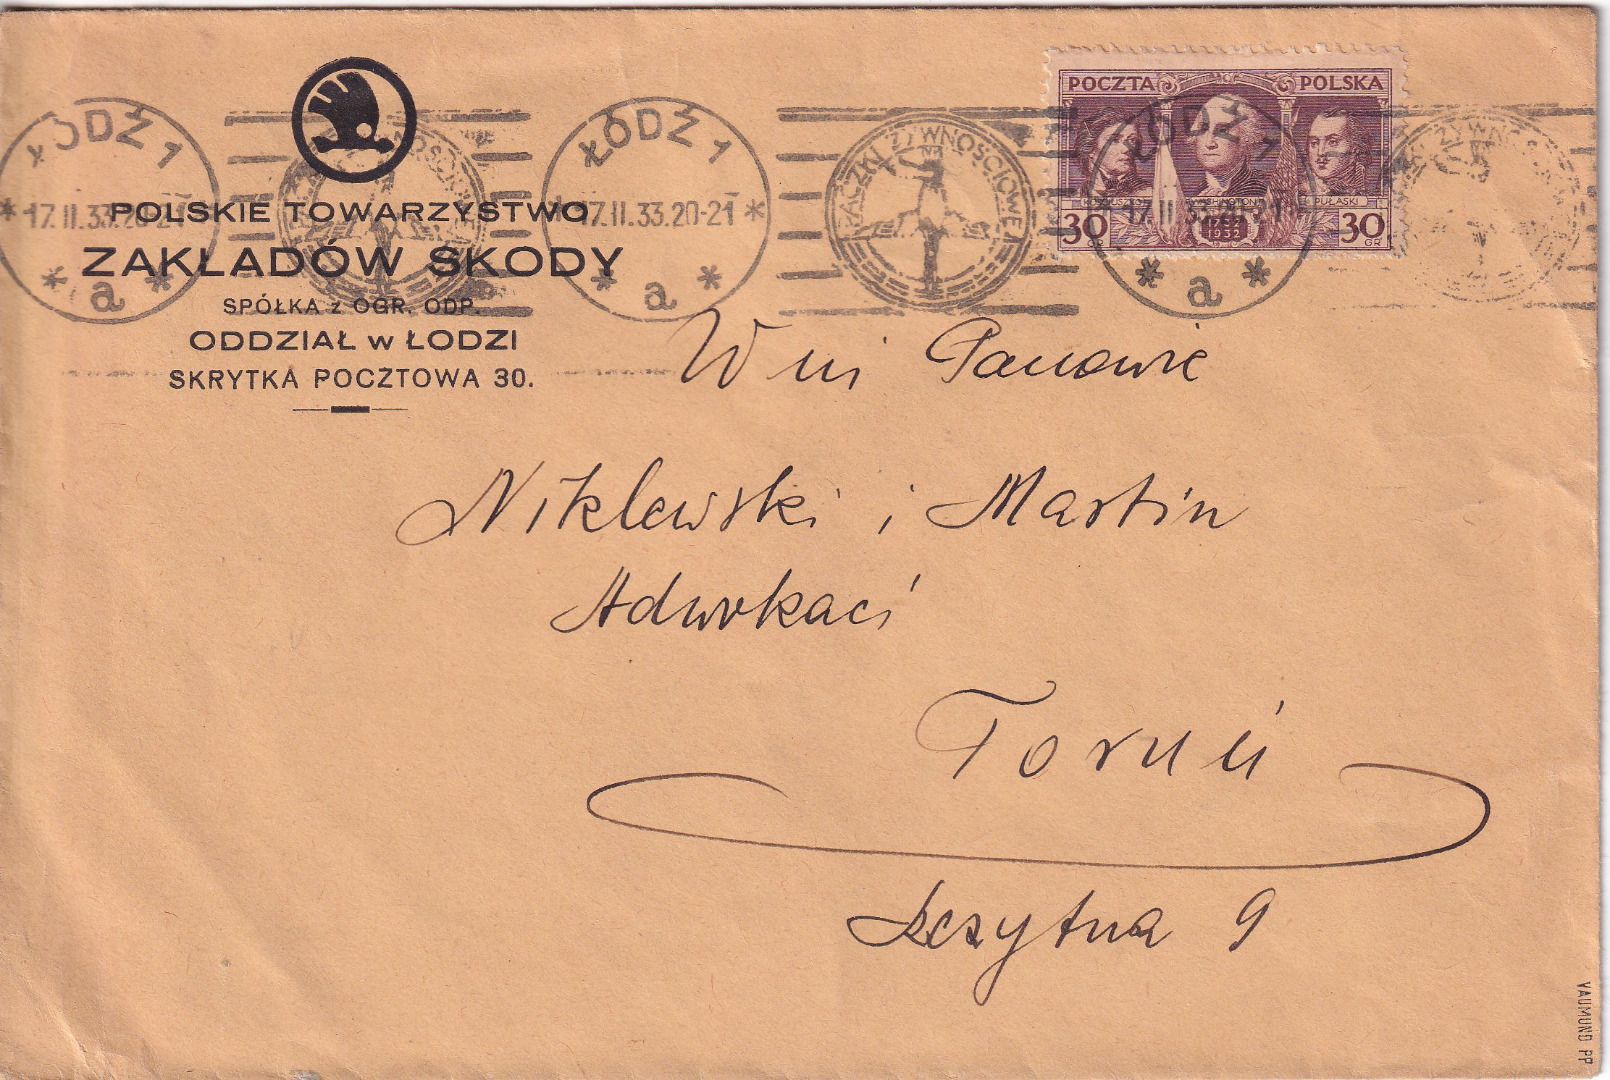 POCZTA POLSKA
KOŚCIUSZKO WASHINGTON K. PUŁASKI
30 GR 1732 1932 30 GR
ŁÓDŹ 1
17.II.33.20-21
* a *
ŁÓDŹ 1
*17.II.33.20-21*
* a *
PACZKI ŻYWNOŚCIOWE
ŁÓDŹ 1
17.II.33.20-21
* a *
POLSKIE TOWARZYSTWO
ZAKŁADÓW SKODY
SPÓŁKA z OGR. ODP.
ODDZIAŁ w ŁODZI
SKRYTKA POCZTOWA 30.
Wni Panowie
Niklewski i Martin
Adwokaci
Toruń
Szczytna 9
VAUMUND PP